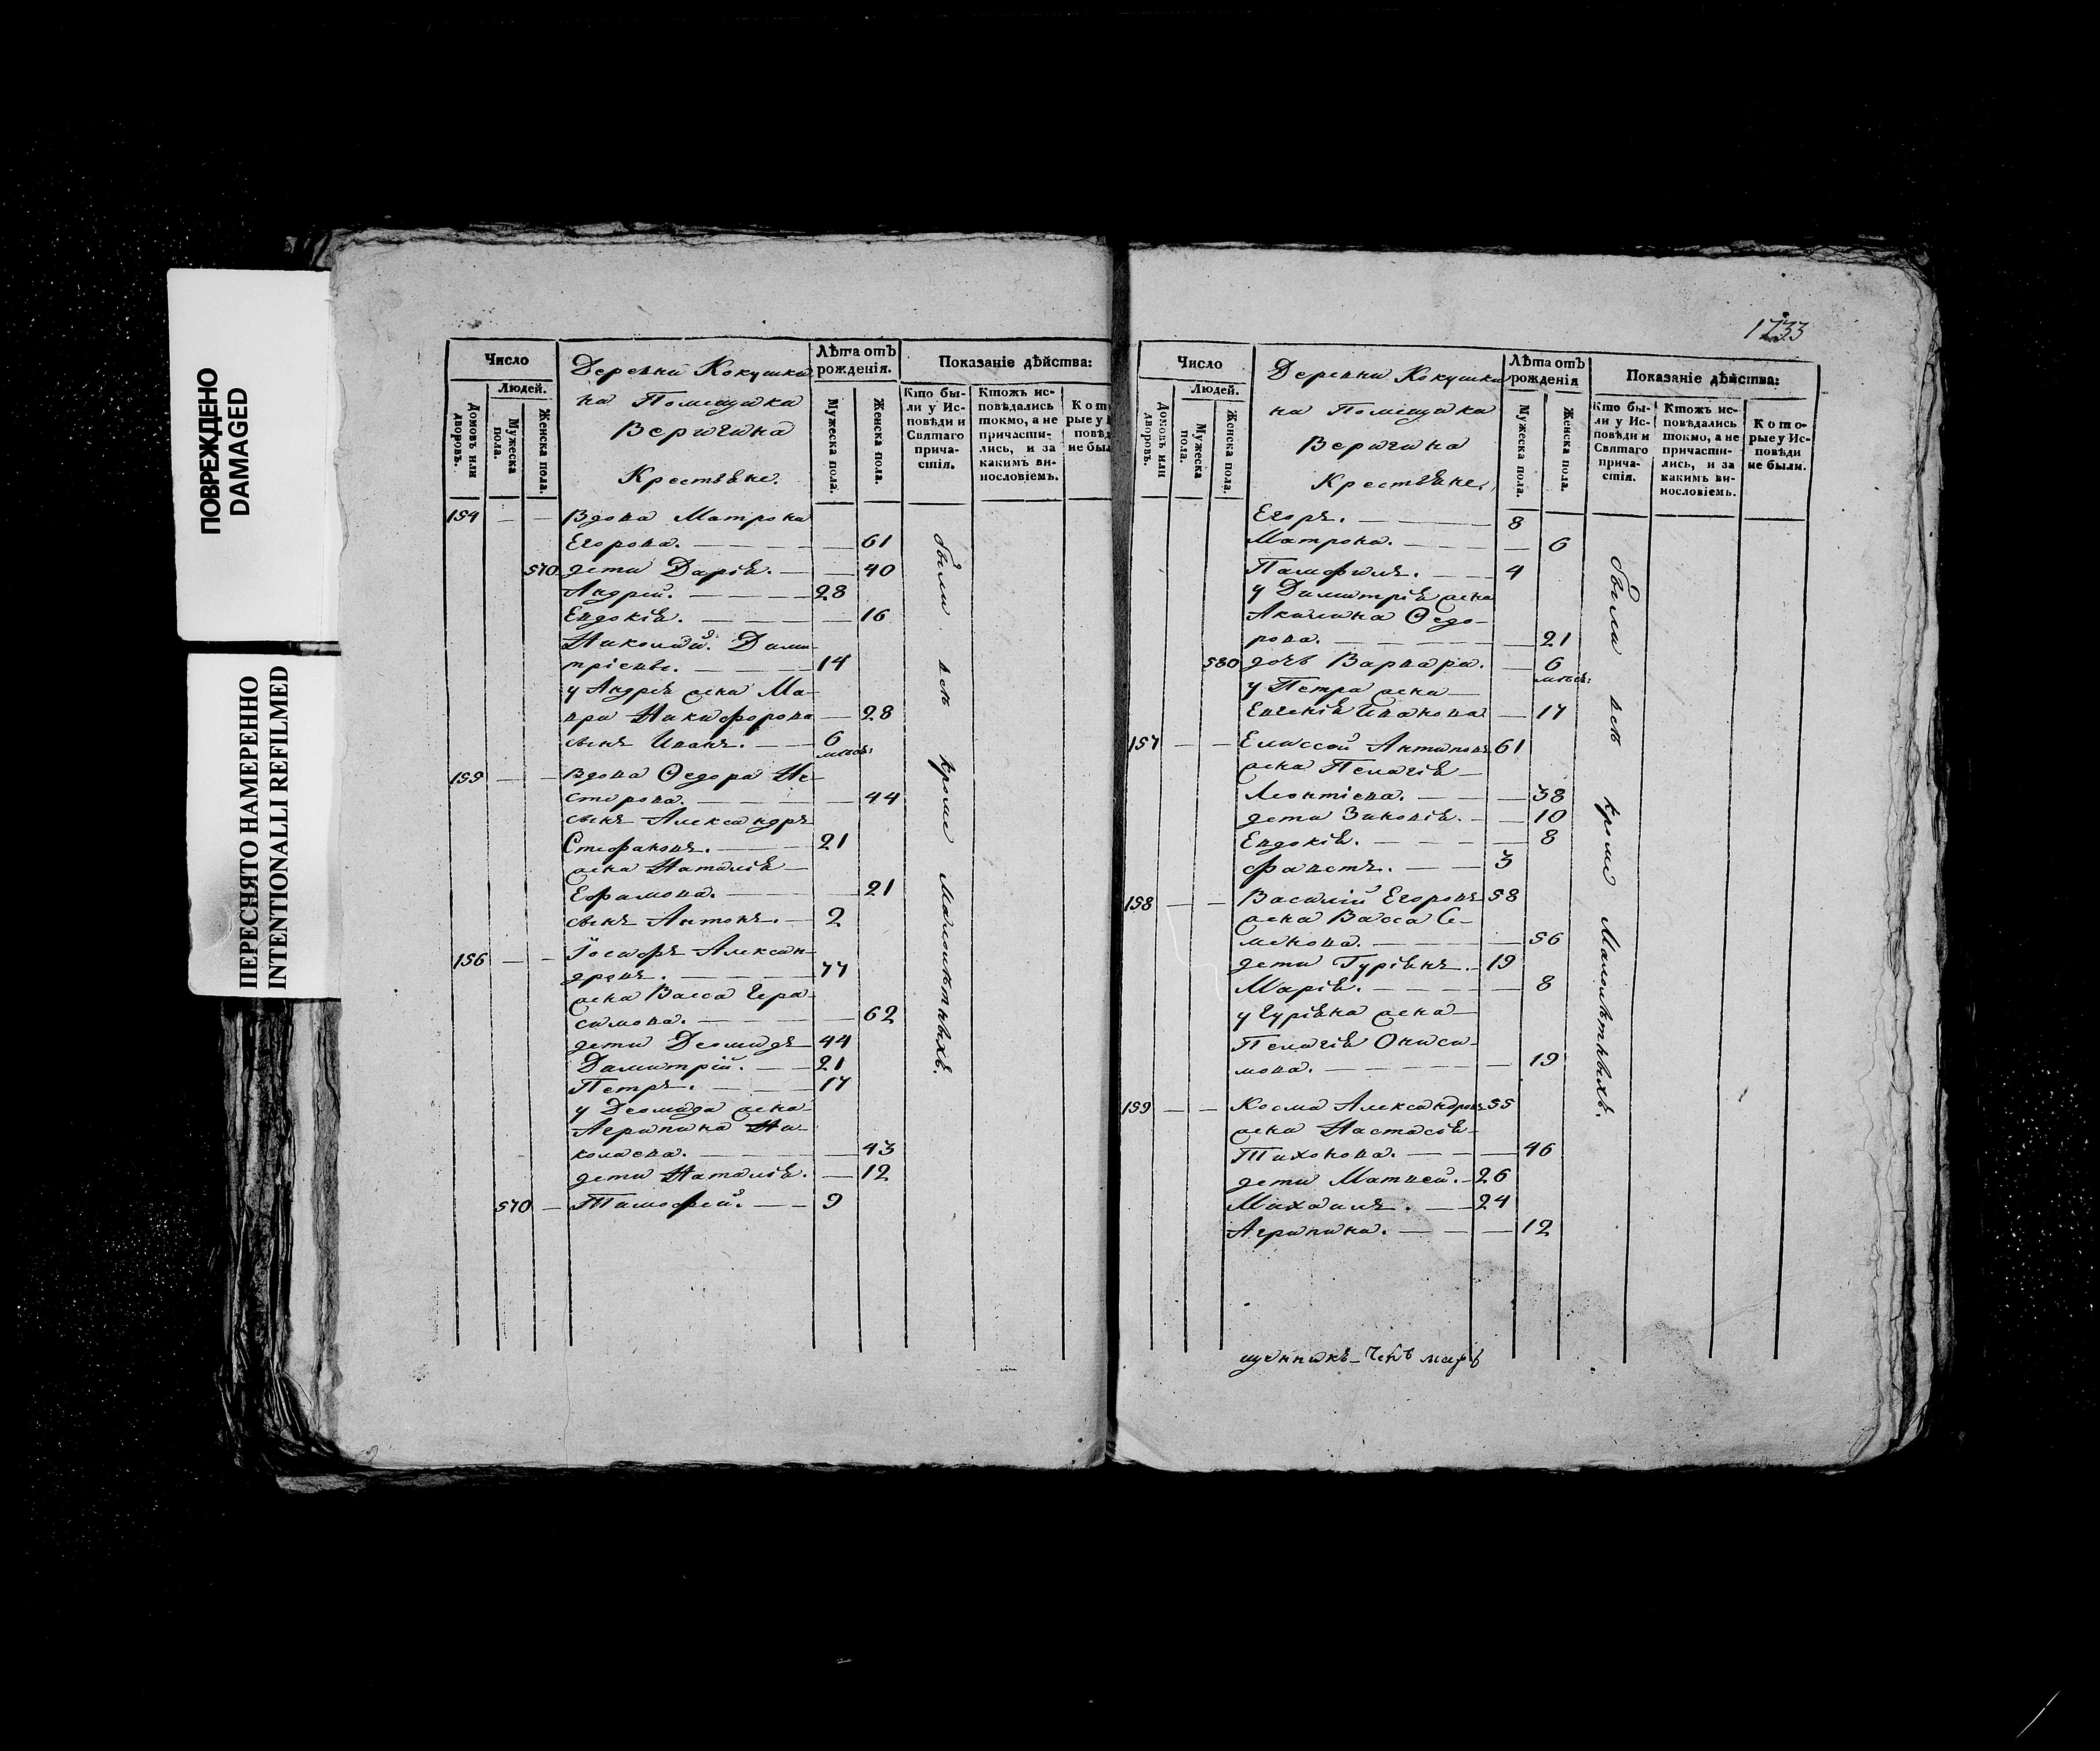 ПОВРЕЖДЕНО
DAMAGED
ПЕРЕСНЯТО НАМЕРЕННО
INTENTIONALLI REFILMED
Число
Людей.
Домовъ или дворовъ.
Мужеска пола.
Женска пола.
Деревни Кокушки
на Помещика
Веригина
Крестьяне.
Лѣта отъ
рожденія.
Мужеска пола.
Женска пола.
Показаніе дѣйства:
Кто бы-
ли у Ис-
повѣди и
Святаго
прича-
стія.
Ктожъ ис-
повѣдались
токмо, а не
причасти-
лись, и за
какимъ ви-
нословіемъ.
Кот
рые у
повѣ
не был
154 — — Вдова Матрона
Егорова. — — 61
570 дети Дарія. — — 40
Андрей. — — 28
Евдокія. — — 16
Николай. Дими-
тріевъ. — — 14
у Андрея жена Ма-
вра Никифорова — 28
сынъ Иванъ. — — 6
месяц:
155 — — Вдова Ѳедора Не-
стерова. — — 44
сынъ Александръ
Стефановъ. — — 21
жена Наталія —
Ефимова. — — 21
сынъ Антонъ. — 2
156 — — Іосифъ Алексан-
дровъ. — — 77
жена Васса Гера-
симова. — — 62
дети Деомидъ — 44
Димитрій. — — 21
Петръ. — — 17
у Деомида жена
Агрипина Ни-
колаева. — — 43
дети Наталія. — 12
570 — Тимофей. — — 9
были всѣ кроме малолѣтныхъ.
1733
Число
Людей.
Домовъ или дворовъ.
Мужеска пола.
Женска пола.
Деревни Кокушки
на Помещика
Веригина
Крестьяне.
Лѣта отъ
рожденія
Мужеска пола.
Женска пола.
Показаніе дѣйства:
Кто бы-
ли у Ис-
повѣди и
Святаго
прича-
стія.
Ктожъ ис-
повѣдались
токмо, а не
причасти-
лись, и за
какимъ ви-
нословіемъ.
Кото-
рые у Ис-
повѣди
не были.
Егоръ. — — 8
Матрона. — — 6
Памфилъ. — — 4
у Димитрія жена
Акилина Ѳедо-
рова. — — 21
580 дочь Варвара. — 6
месяц:
у Петра жена —
Евгенія Иванова — 17
157 — — Елиссей Антиповъ 61
жена Пелагія —
Леонтіева. — — 38
дети Зиновія. — — 10
Евдокія. — — 8
Фавстъ. — — 3
158 — — Василій Егоровъ 58
жена Васса Се-
менова. — — 56
дети Гуріанъ. — 19
Марія. — — 8
у Гуріана жена —
Пелагія Ониси-
мова. — — 19
159 — — Косма Александровъ 55
жена Настасія —
Тихонова. — — 46
дети Матвей. — 26
Михаилъ. — — 24
Агрипина. — — 12
были всѣ кроме малолѣтныхъ.
щенникъ